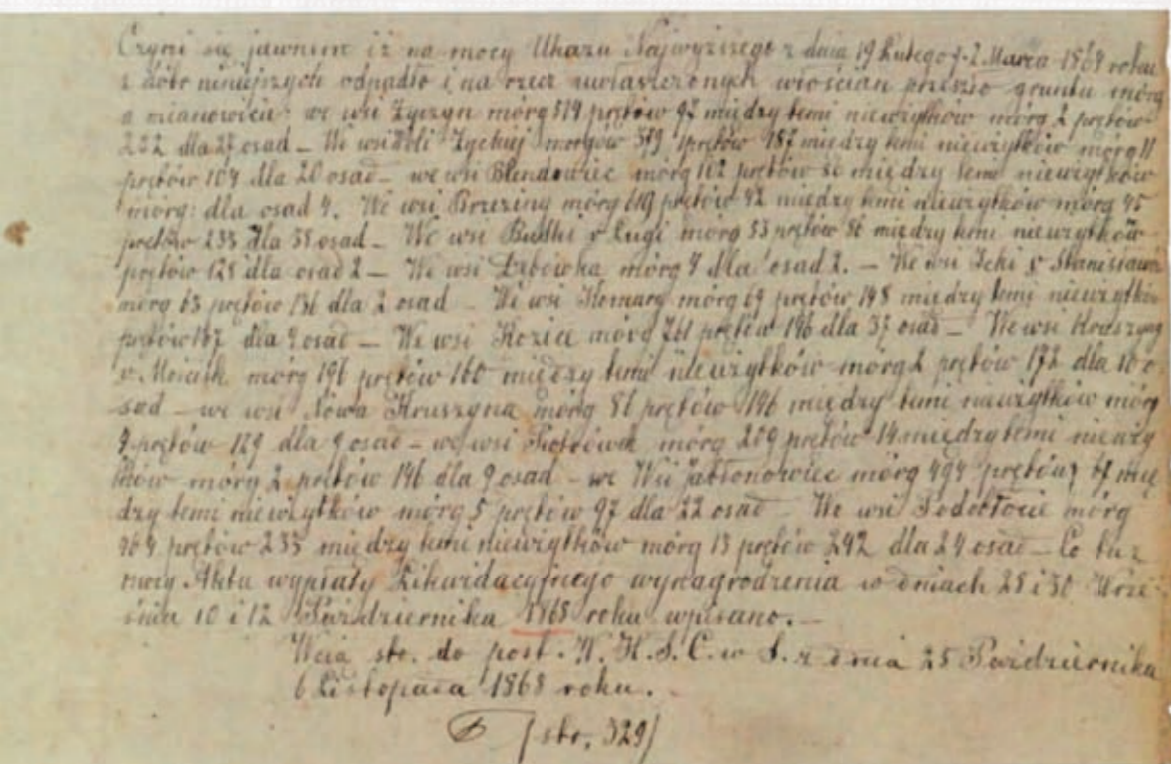 Czyni się jawnem iż na mocy Ukazu Najwyższego z dnia 19 Lutego f. 2 Marca 1864 roku
z dóbr niniejszych odpadło i na rzecz uwłaszczonych włościan przeszło gruntu mórg
a mianowicie: we wsi Życzyn mórg 519 prętów 92 między temi nieużytków mórg 2 prętów
222 dla 27 osad – We wsi Woli Życkiej morgów 359 prętów 187 między temi nieużytków mórg 11
prętów 104 dla 20 osad – we wsi Blendowiec mórg 102 prętów 80 między temi nieużytków
mórg: dla osad 4. We wsi Brzeziny mórg 619 prętów 42 między temi nieużytków mórg 45
prętów 233 dla 35 osad – We wsi Budki v Ługi mórg 33 prętów 86 między temi nieużytków
prętów 125 dla osad 2 – We wsi Dębówka mórg 4 dla osad 2. – We wsi v Stanisławów
mórg 63 prętów 136 dla 2 osad – We wsi Komary mórg 69 prętów 148 między temi nieużytków
prętów 167 dla 9 osad – We wsi Kozice mórg 261 prętów 196 dla 37 osad – We wsi Kruszyna
v. mórg 196 prętów 160 między temi nieużytków mórg 2 prętów 172 dla 10 o-
sad – we wsi Nowa Kruszyna mórg 86 prętów 196 między temi nieużytków mórg
4 prętów 129 dla 9 osad – we wsi Piotrówek mórg 209 prętów 14 między temi nieuży
tków mórg 2 prętów 146 dla 9 osad – we Wsi Jabłonowiec mórg 494 prętów 67 mię
dzy temi nieużytków mórg 5 prętów 97 dla 22 osad – We wsi Podebłocie mórg
464 prętów 233 między temi nieużytków mórg 13 prętów 242 dla 24 osad – Co tu z
mocy Aktu wypłaty Likwidacyjnego wynagrodzenia w dniach 28 i 30 Wrze-
śnia 10 i 12 Października 1868 roku wpisano. –
Wcią. sto. do post. W. K. S. C. w S. z dnia 25 Października
6 Listopada 1868 roku.
(str. 329)